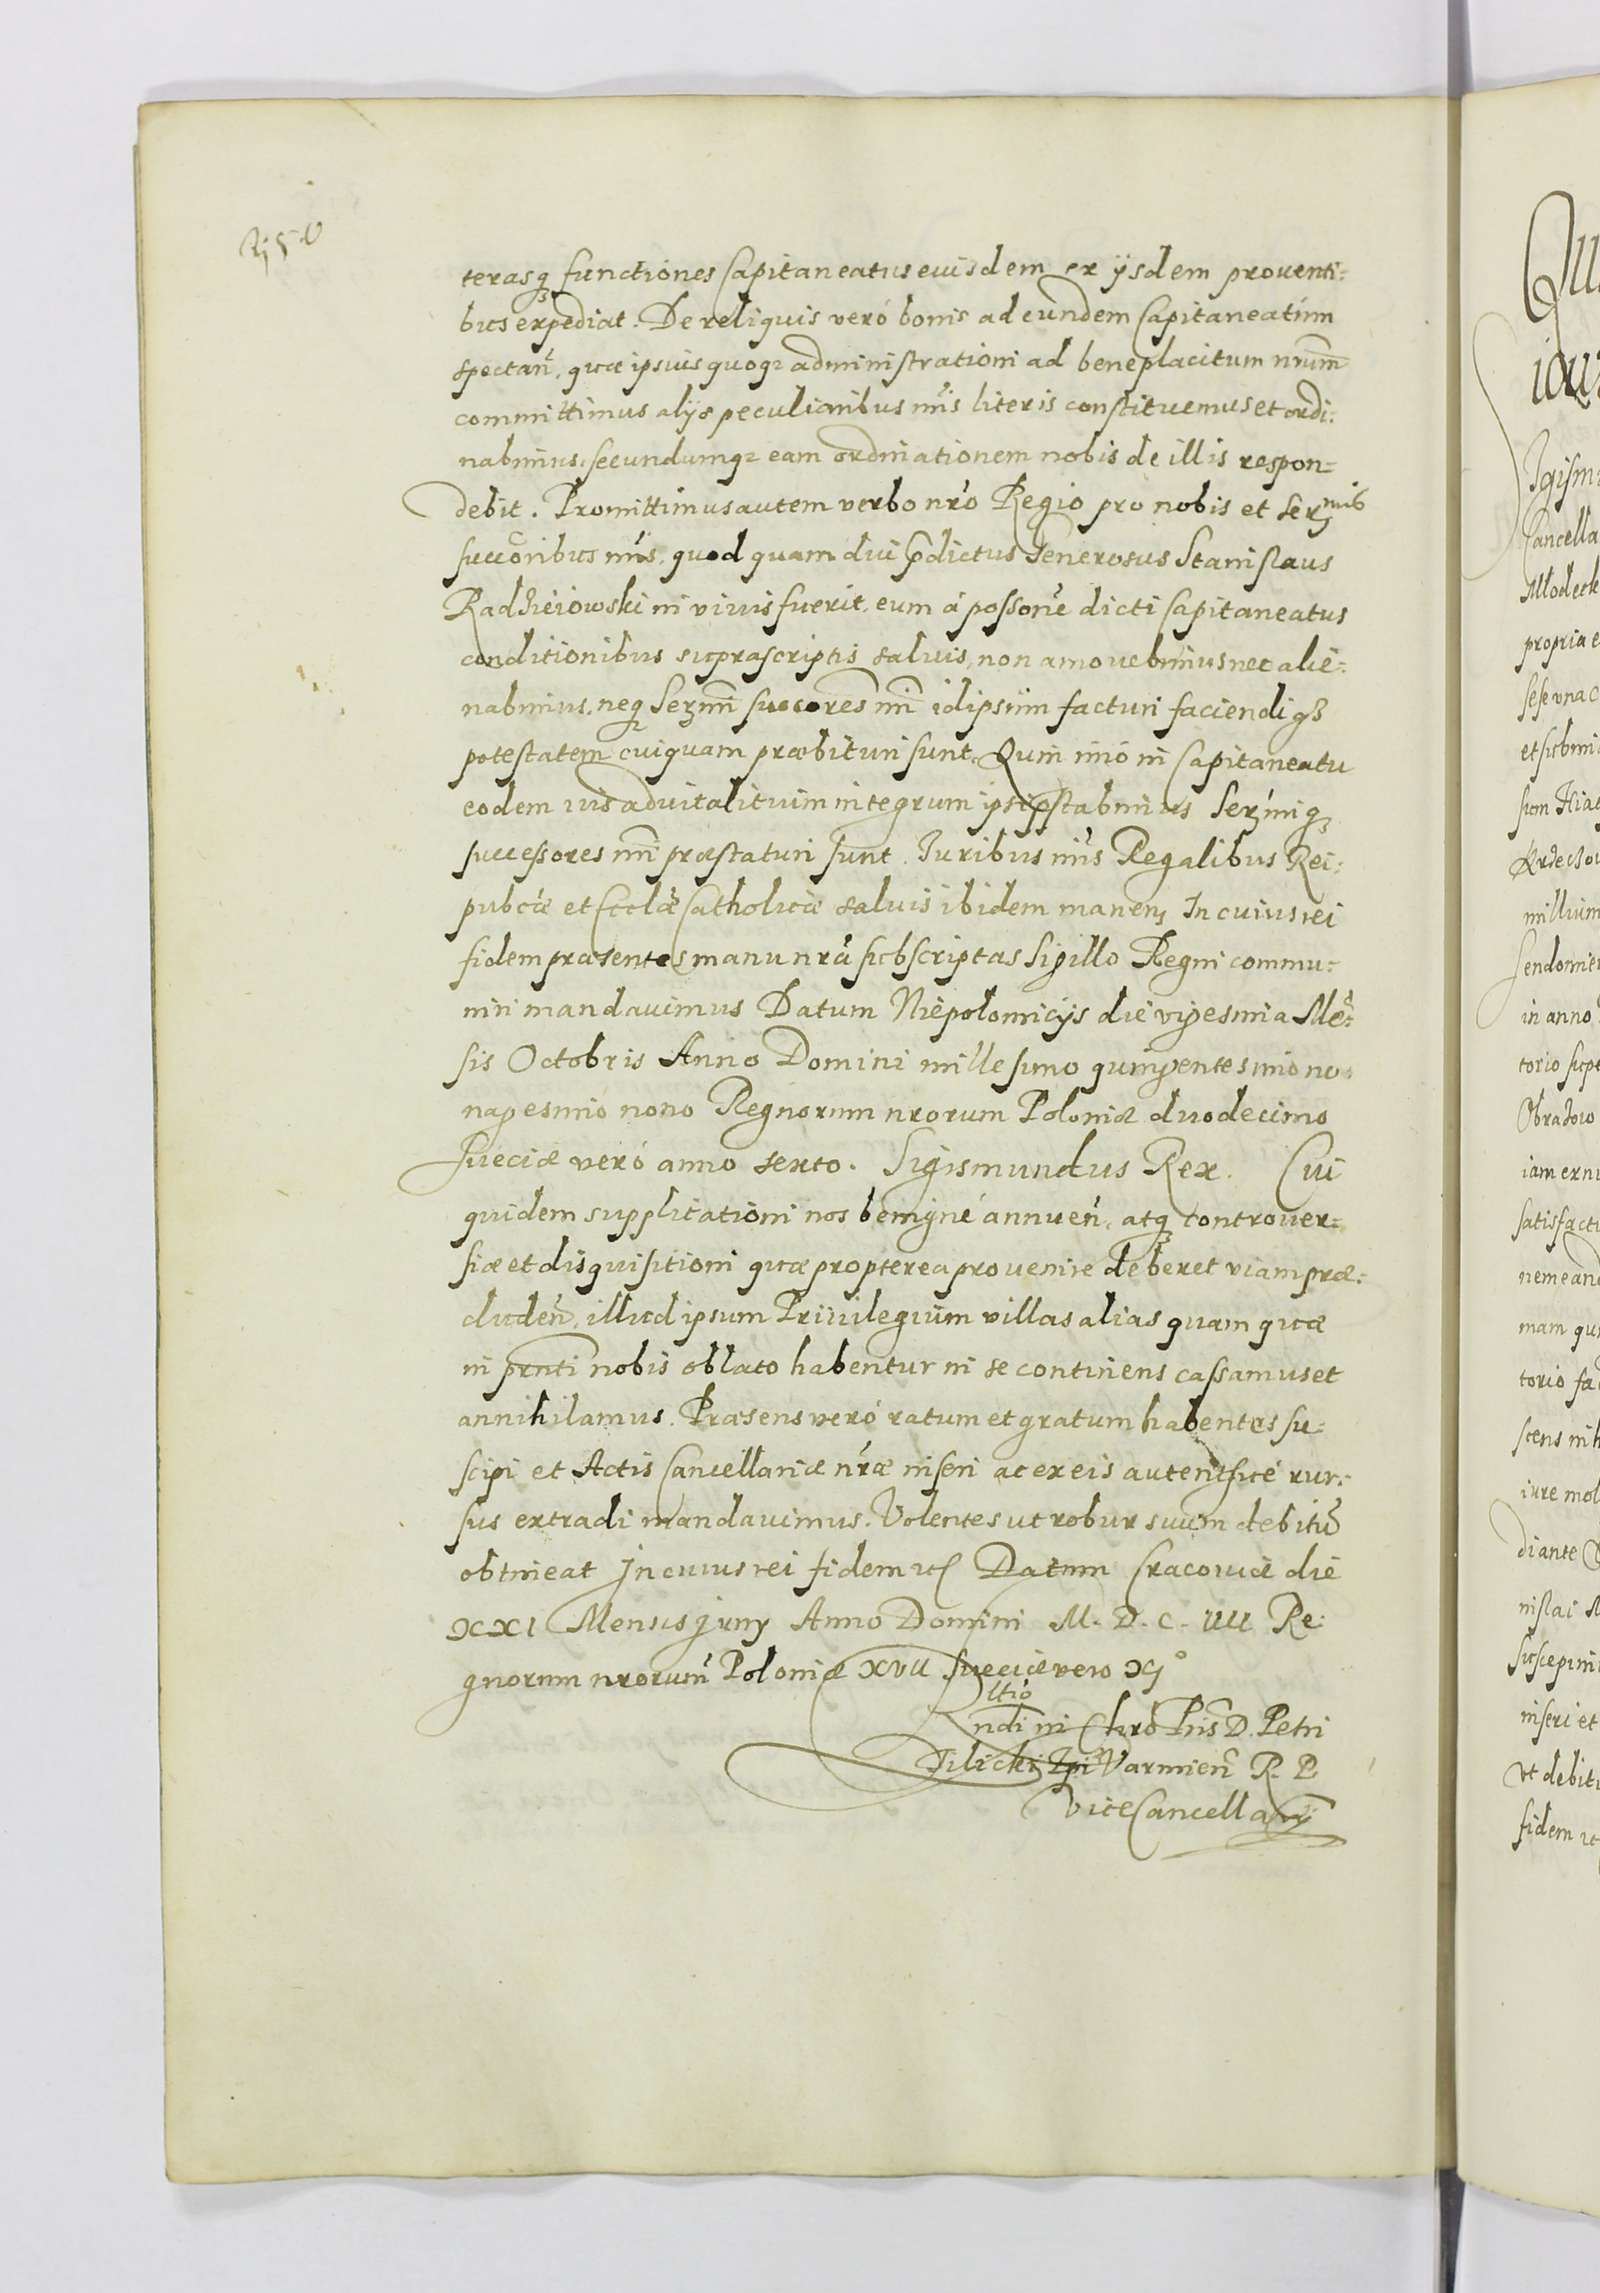 terasq functiones Capitaneatus euisdem ex ijsdem prouenti-
bus expediat. De reliquis veró bonis ad eundem Capitaneatum
spectan̄, quæ ipsius quoq administrationi ad beneplacitum nrum̄
committimus alijs peculiaribus nris̄ literis constituemus et ordi-
nabimus, secundumq eam ordinationem nobis de illis respon-
debit. Promittimus autem verbo nro̅ Regio pro nobis et Sermis
succoribus nris̄, quod quam diu pdictus Generosus Stanislaus
Radzieiowski in viuis fuerit, eum á possone̅ dicti Capitaneatus
conditionibus suprascriptis saluis, non amouebimus nec alie-
nabimus, neq Serm̄i succores nri̅ idipsum facturi faciendiq
potestatem cuiquam præbituri sunt. Quin imó in Capitaneatu
eodem ius aduitalitium integrum ipsi pstabimus Serm̄iq
successores nri̅ præstaturi sunt. Iuribus nris̄ Regalibus Rei-
pubcæ et Eccl̄æ Catholicæ saluis ibidem manen. In cuius rei
fidem præsentes manu nra̅ subscriptas Sigillo Regni commu-
niri mandauimus Datum Niepolomicijs die vigesima Me̅-
sis Octobris Anno Domini millesimo quingentesimo no-
nagesimo nono Regnorum nrorum Poloniæ duodecimo
Sueciæ veró anno sexto. Sigismundus Rex. Cui
quidem supplicationi nos benigné annuen̄, atq controuer-
siæ et disquisitioni quæ propterea prouenire deberet viam præ-
cluden̄, illud ipsum Priuilegium villas alias quam quæ
in prnti nobis oblato habentur in se continens cassamus et
annihilamus. Præsens veró ratum et gratum habentes su-
scipi et Actis Cancellariæ nræ inseri ac ex eis autenticé rur-
sus extradi mandauimus. Volentes ut robur suum debitu̅
obtineat In cuius rei fidem etc Datum Cracouiæ die
XXI Mensis Juny Anno Domini M. D. C. IIII Re-
gnorum nrorum̄ Poloniæ XVII Sueciæ vero XI°
Rndi in Chro Pris D. Petri
Tilicki Epi Varmien̄ R. P.
ViceCancellarij